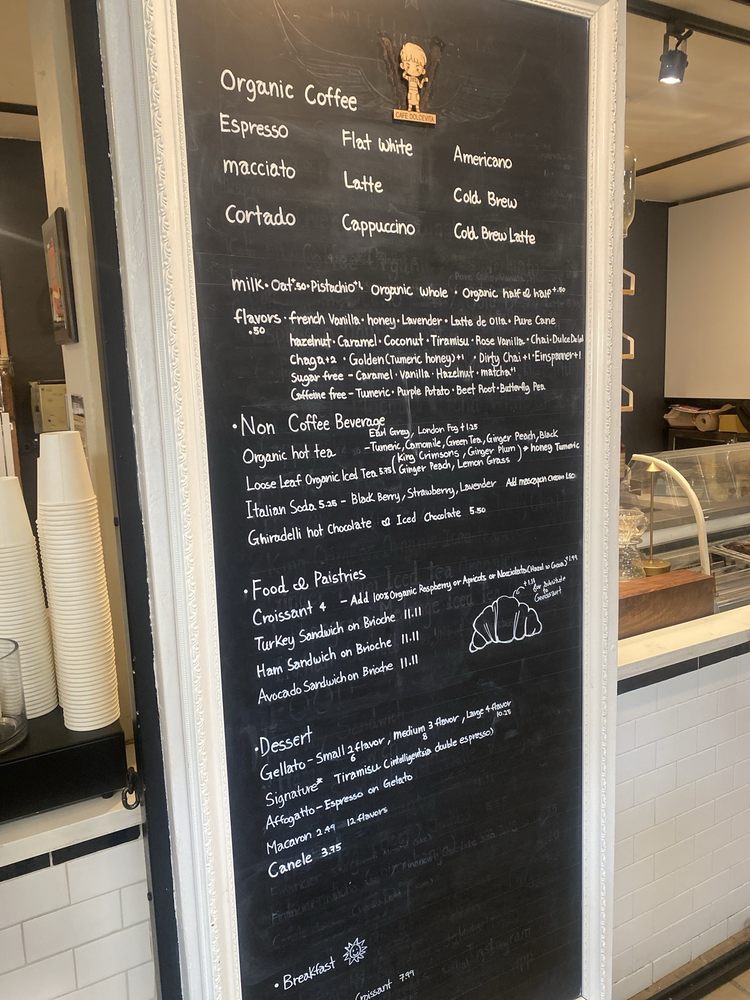 CAFE DOLCEVITA
Organic Coffee
Espresso Flat White Americano
macciato Latte Cold Brew
Cortado Cappuccino Cold Brew Latte
milk · Oat+.50 · Pistachio+1 Organic whole · Organic half & half+.50
flavors · french Vanilla · honey · Lavender · Latte de Olla · Pure Cane
.50
hazelnut · Caramel · Coconut · Tiramisu · Rose Vanilla · Chai · Dulce
Chaga+2 · Golden (Tumeric honey)+1 · Dirty Chai+1 · Einspanner+1
Sugar free - Caramel · Vanilla · Hazelnut · matcha+1
Caffeine free - Tumeric · Purple Potato · Beet Root · Butterfly Pea
· Non Coffee Beverage
Earl Grey, London Fog +1.25
Organic hot tea - Tumeric, Camomile, Green Tea, Ginger Peach, Black
Loose Leaf Organic Iced Tea 5.75 (King Crimsons, Ginger Plum) + honey Tumeric
Ginger Peach, Lemon Grass
Italian Soda 5.25 - Black Berry, Strawberry, Lavender Add Cream 1.50
Ghiradelli hot Chocolate & Iced Chocolate 5.50
· Food & Paistries
Croissant 4 - Add 100% Organic Raspberry or Apricots or (Hazel w Cocoa) +1.99
+1.11 for Substitute to Croissant
Turkey Sandwich on Brioche 11.11
Ham Sandwich on Brioche 11.11
Avocado Sandwich on Brioche 11.11
· Dessert
Gellato - Small 2 flavor, medium 3 flavor, Large 4 flavor
6 8 10.25
Signature* Tiramisu (intelligentsia double espresso)
Affogatto - Espresso on Gelato
Macaron 2.49 12 flavors
Canele 3.75
· Breakfast
Croissant 7.99